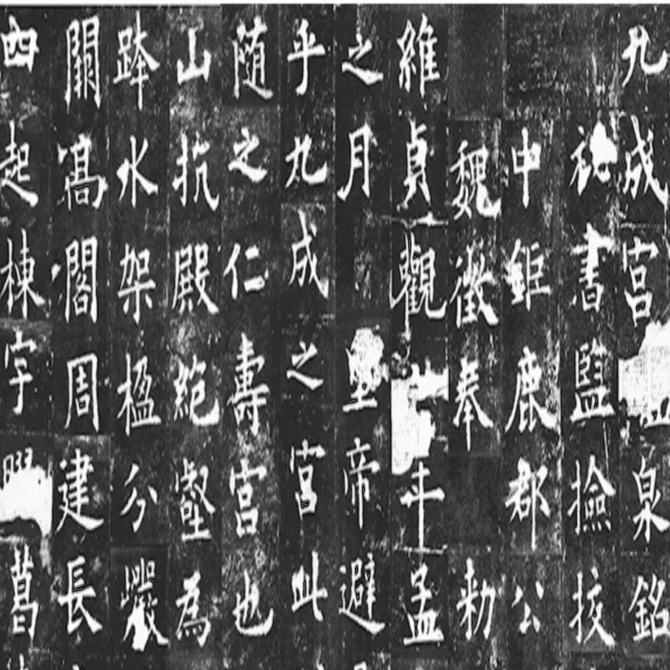 九成宮泉銘
祕書監撿挍
中鉅鹿郡公
魏徵奉勑
維貞觀年孟
之月皇帝避
乎九成之宮此
随之仁壽宮也
山抗殿絕壑為
跨水架楹分巖
闕髙閣周建長
四起棟宇葛